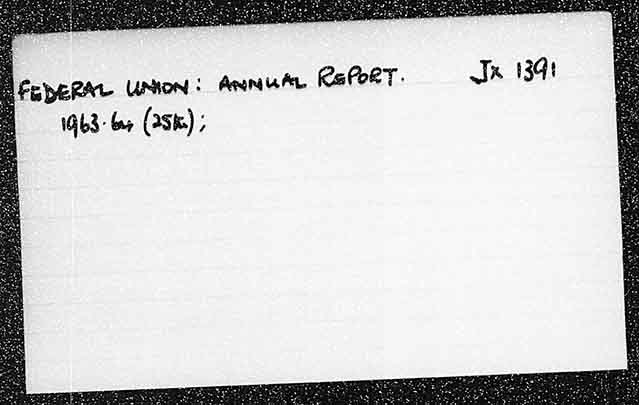 FEDERAL UNION: ANNUAL REPORT. Jx 1391
1963-64 (25th);